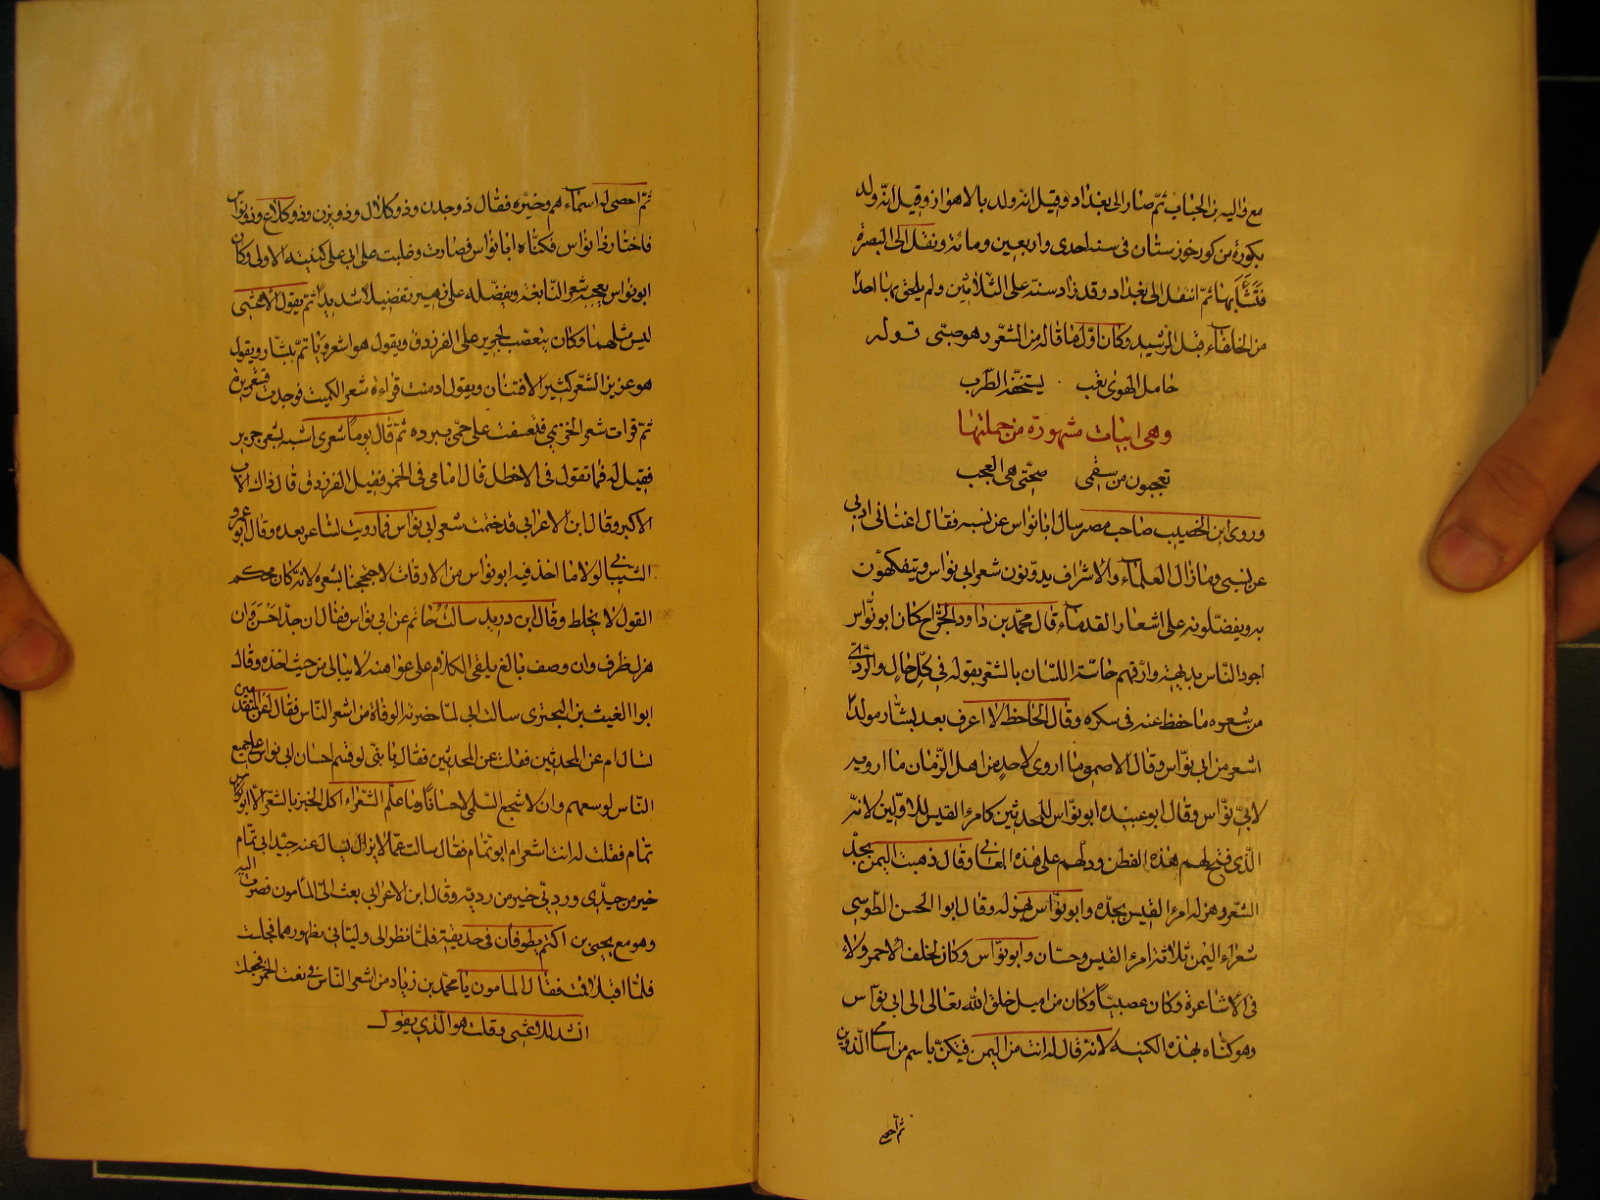 مع والبه بن الحباب ثم صار الى بغداد وقيل انه ولد بالاهواز وقيل انه ولد
بكورة من كور خوزستان فى سنه احدى واربعين ومائة ونقل الى البصرة
فنشأ بها ثم انتقل الى بغداد وقد زاد سنه على الثلاثين ولم يلحق بها احدا
من الخلفاء قبل الرشيد وكان اول ما قاله من الشعر وهو صبى قوله
حامل الهوى تعب يستخفه الطرب
وهى ابيات مشهورة من جملتها
تعجبون من سقمى صحتى هى العجب
وروى ابن الخصيب صاحب مصر سال ابا نواس عن نسبه فقال اغنانى ادبى
عن نسبى وما زال العلماء والاشراف يدونون شعر ابى نواس ويتفكهون
به ويفضلونه على اشعار القدماء قال محمد بن داود الجراح كان ابو نواس
اجود الناس بديهة وارقهم حاشية اللسان بالشعر يقوله فى كل حال والردى
من شعره ما حفظ عنه فى سكره وقال الجاحظ لا اعرف بعد بشار مولدا
اشعر من ابى نواس وقال الاصمعى ما اروى لاحد من اهل الزمان ما ارويه
لابى نواس وقال ابو عبيده ابو نواس للمحدثين كامرء القيس للاولين لانه
الذى فتح لهم هذه الفطن ودلهم على هذه المعانى وقال ذهبت اليمن بجد
الشعر وهزله امرء القيس بجده وابو نواس بهزله وقال ابو الحسن الطوسى
شعراء اليمن ثلاثة امرء القيس وحسان وابو نواس وكان لخلف الاحمر ولاء
فى الاشاعرة وكان عصبيا وكان من اميل خلق الله تعالى الى ابى نواس
وهو كناه بهذه الكنيه لانه قال له انت من اليمن فتكن باسم من اسامى الذوين
ثم احصى
ثم احصى له اسماء هم وخيره فقال ذوجدن وذوكلال وذويزن وذوكلاع وذونواس
فاختار ذا نواس فكناه ابا نواس فصارت وغلبت على ابى على كنيته الاولى وكان
ابو نواس يعجبه شعر النابغة ويفضله على زهير تفضيلا شديدا ثم يقول الاعشى
ليس مثلهما وكان يتعصب لجرير على الفرزدق ويقول هو اشعر وياتم ببشار ويقول
هو عزيز الشعر كثير الافتنان ويقول ادمنت قراءة شعر الكميت فوجدت قشعريرة
ثم قرات شعر الخزيمى فتعسفت على حمى ببرده ثم قال يوما شعرى اشبه بشعر جرير
فقيل له فما تقول فى الاخطل قال امامى فى الخمر فقيل الفرزدق قال ذاك الاب
الاكبر وقال ابن الاعرابى قد ختمت شعر ابى نواس فما رويت لشاعر بعده وقال ابو عمرو
الشيبانى لولا ما اخذ فيه ابو نواس من الارفاث لاحتججنا بشعره لانه كان محكم
القول لا يخلط وقال ابن دريد سالت حاتم عن ابى نواس فقال ان جد احسن وان
هزل ظرف وان وصف بالغ يلقى الكلام على عواهنه لا يبالى من حيث اخذه وقال
ابوا الغيث بن البحترى سالت ابى لما حضرته الوفاة من اشعر الناس فقال اعن المتقدمين
تسال ام عن المحدثين فقلت عن المحدثين فقال يا بنى لو قسم احسان ابى نواس على جميع
الناس لوسعهم وان لاشجع السلمى لاحسانا وما علم الشعراء اكل الخبز بالشعر الا ابو
تمام فقلت له انت اشعر ام ابو تمام فقال سالت عما لا يزال يسال عنه جيد ابى تمام
خير من جيدى ورديى خير من رديه وقال ابن الاعرابى بعث الى المأمون فصرت اليه
وهو مع يحيى بن اكثم يطوفان فى حديقة فلما نظر الى ولياني ظهورهما فجلست
فلما اقبلا قمت فقال المامون يا محمد بن زياد من اشعر الناس فى نعت الخمر فجعلت
انشد للاعشى وقلت هو الذى يقول